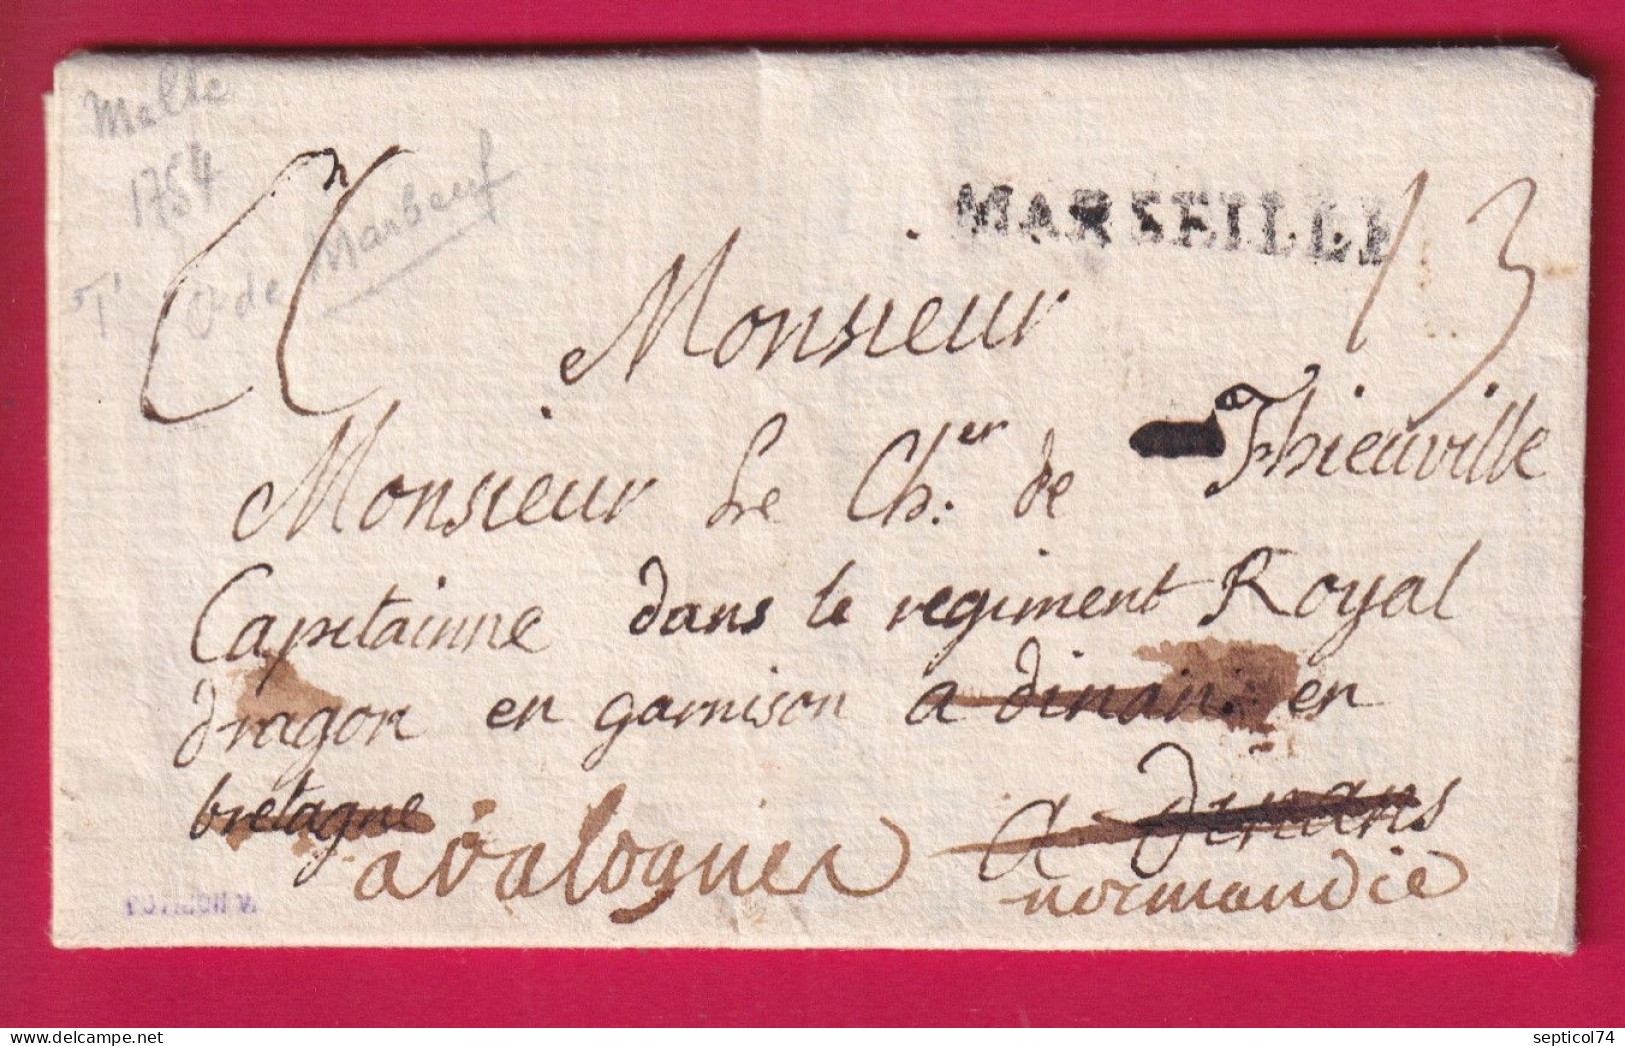 Malte
1754
de Marbeuf
MARSEILLE
13
Monsieur
Monsieur Le Ch.er de Thieuville
Capitainne dans le regiment Royal
dragon en garnison a dinan en
bretagne a dinans
a valognes
normandie
delcampe.net
septicol74